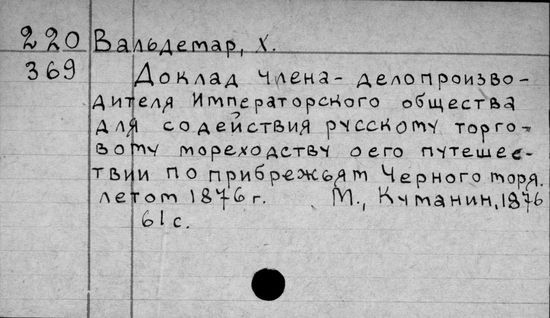 220 Вальдемар, Х.
369 Доклад члена-делопроизво-
дителя Императорского общества
для содействия русскому торго-
вому мореходству о его путеше-
ствии по прибрежьям Черного моря.
летом 1876 г. М., Куманин, 1876
61 с.